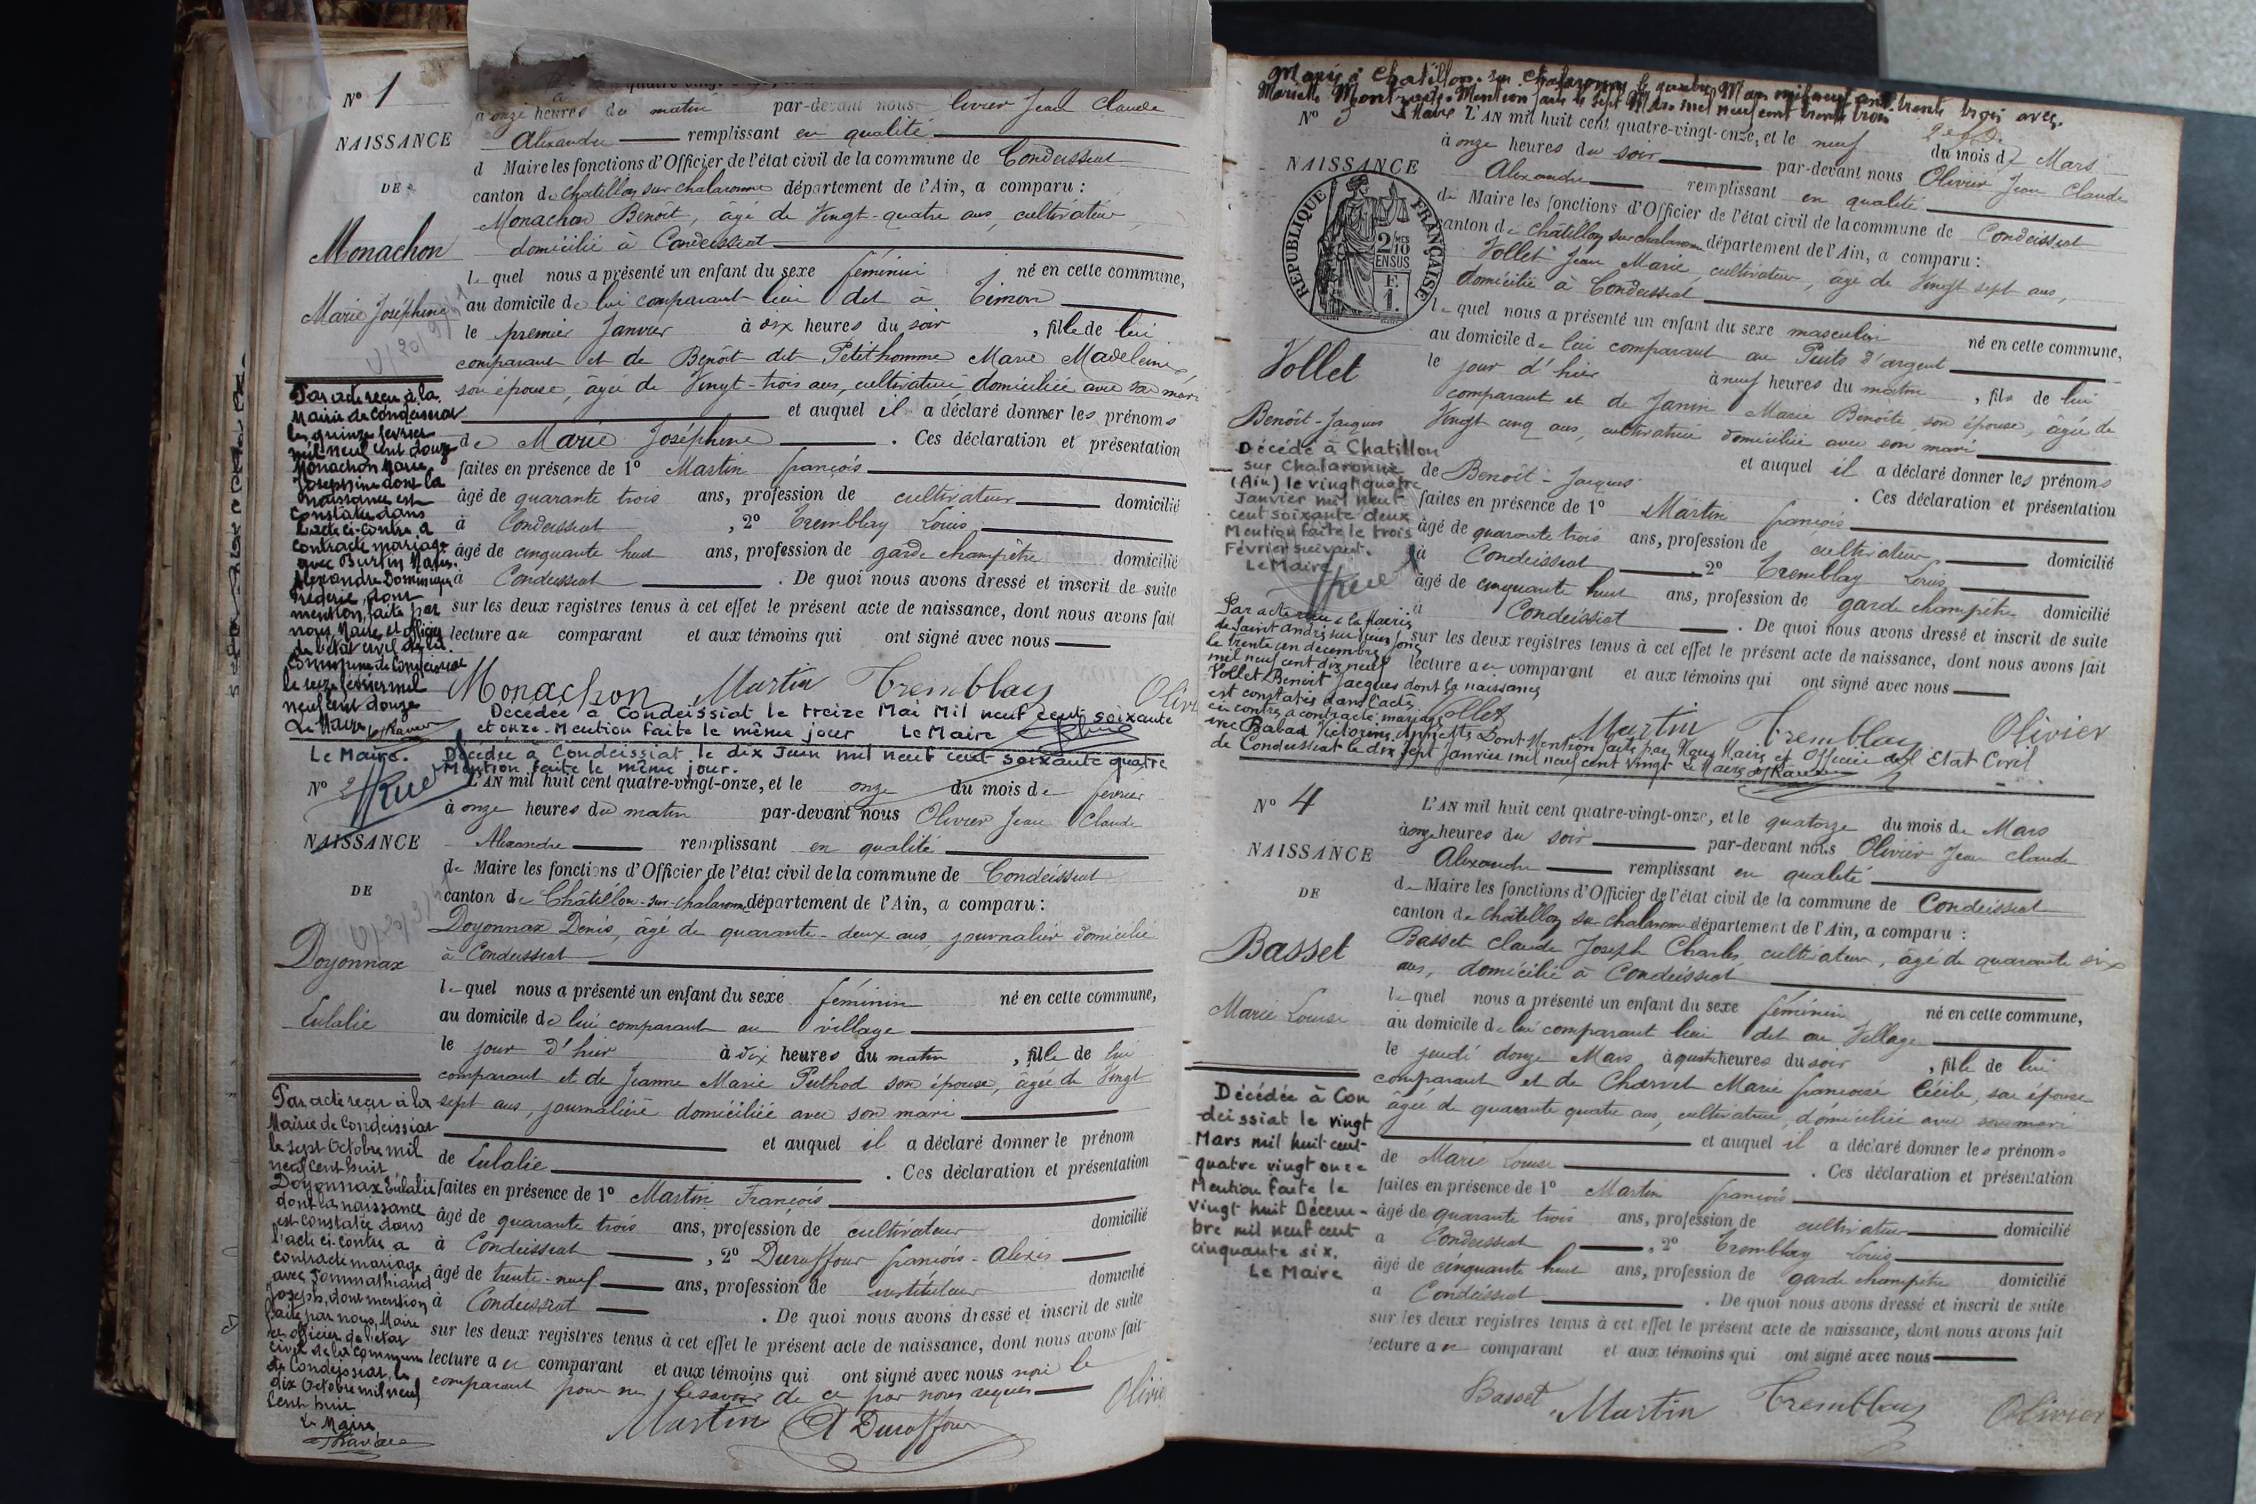 N° 1
quatre-vingt-onze
à onze heures du matin par-devant nous Olivier Jean Claude
NAISSANCE
Alexandre remplissant en qualité
d Maire les fonctions d'Officier de l'état civil de la commune de Condeissiat
DE
canton de Chatillon sur chalaronne département de l'Ain, a comparu :
Monachon Benoît, âgé de Vingt-quatre ans, cultivateur,
Monachon
domicilié à Condeissiat
lequel nous a présenté un enfant du sexe féminin né en cette commune,
Marie Joséphine
au domicile de lui comparant lieu dit à Timon
le premier Janvier à dix heures du soir, fille de lui
comparant et de Benoît dit Petithomme Marie Madeleine,
son épouse, âgée de Vingt-trois ans, cultivatrice domiciliée avec son mari
et auquel il a déclaré donner les prénoms
de Marie Joséphine . Ces déclaration et présentation
faites en présence de 1° Martin françois
âgé de quarante trois ans, profession de cultivateur domicilié
à Condeissiat, 2° Tremblay Louis
âgé de cinquante huit ans, profession de garde champêtre domicilié
à Condeissiat . De quoi nous avons dressé et inscrit de suite
sur les deux registres tenus à cet effet le présent acte de naissance, dont nous avons fait
lecture au comparant et aux témoins qui ont signé avec nous
Par acte reçu à la
Mairie de Condeissiat
le quinze février
mil neuf cent douze
Monachon Marie
Joséphine dont la
naissance est
constatée dans
l'acte ci-contre a
contracté mariage
avec Burtin Marie
Alexandre Dominique
Fréderic, dont
mention faite par
nous, Maire et officier
de l'état civil de la
commune de Condeissiat
le seize février mil
neuf cent douze
Le Maire
Monachon Martin Tremblay Olivier
Décédée à Condeissiat le treize Mai Mil neuf cent soixante
et onze. Mention faite le même jour Le Maire
Le Maire. Décédée à Condeissiat le dix Juin mil neuf cent soixante quatre
Mention faite le même jour.
N° 2
L'AN mil huit cent quatre-vingt-onze, et le onze du mois de février
à onze heures du matin par-devant nous Olivier Jean Claude
NAISSANCE
Alexandre remplissant en qualité
de Maire les fonctions d'Officier de l'état civil de la commune de Condeissiat
DE
canton de Châtillon-sur-chalaronne département de l'Ain, a comparu :
Doyonnax Denis, âgé de quarante-deux ans, journalier domicilié
Doyonnax
à Condeissiat
lequel nous a présenté un enfant du sexe féminin né en cette commune,
Eulalie
au domicile de lui comparant au village
le jour d'hier à dix heures du matin, fille de lui
comparant et de Jeanne Marie Puthod son épouse, âgée de Vingt
sept ans, journalière domiciliée avec son mari
et auquel il a déclaré donner le prénom
de Eulalie . Ces déclaration et présentation
faites en présence de 1° Martin François
âgé de quarante trois ans, profession de cultivateur domicilié
à Condeissiat, 2° Duraffour françois-Alexis
âgé de trente-neuf ans, profession de instituteur domicilié
à Condeissiat . De quoi nous avons dressé et inscrit de suite
sur les deux registres tenus à cet effet le présent acte de naissance, dont nous avons fait
lecture au comparant et aux témoins qui ont signé avec nous non le
comparant pour ne le savoir de ce par nous requis
Par acte reçu à la
Mairie de Condeissiat
le sept Octobre mil
neuf cent huit
Doyonnax Eulalie
dont la naissance
est constatée dans
l'acte ci-contre a
contracté mariage
avec Tommathiand
Joseph, dont mention
faite par nous, Maire
et officier de l'état
civil de la commune
de Condeissiat, le
dix Octobre mil neuf
cent huit
Le Maire
Martin A Duraffour Olivier
Marié à Chatillon-sur-Chalaronne le quatre Mars mil neuf cent trente trois avec
Mention faite le sept Mars mil neuf cent trente trois
N° 3
Maire
L'AN mil huit cent quatre-vingt-onze, et le neuf du mois de Mars
à onze heures du soir par-devant nous Olivier Jean Claude
NAISSANCE
Alexandre remplissant en qualité
de Maire les fonctions d'Officier de l'état civil de la commune de Condeissiat
RÉPUBLIQUE FRANÇAISE
2 MES 10
EN SUS
E
1.
canton de Châtillon sur chalaronne département de l'Ain, a comparu :
Vollet Jean Marie, cultivateur, âgé de Vingt sept ans,
domicilié à Condeissiat
lequel nous a présenté un enfant du sexe masculin né en cette commune,
au domicile de lui comparant au Puits d'argent
Vollet
le jour d'hier à neuf heures du matin, fils de lui
comparant et de Janin Marie Benoîte, son épouse, âgée de
Benoît-Jacques
Vingt cinq ans, cultivatrice domiciliée avec son mari
et auquel il a déclaré donner les prénoms
de Benoît-Jacques . Ces déclaration et présentation
faites en présence de 1° Martin françois
âgé de quarante trois ans, profession de cultivateur domicilié
à Condeissiat 2° Tremblay Louis
âgé de cinquante huit ans, profession de garde champêtre domicilié
à Condeissiat . De quoi nous avons dressé et inscrit de suite
sur les deux registres tenus à cet effet le présent acte de naissance, dont nous avons fait
lecture au comparant et aux témoins qui ont signé avec nous
Décédé à Chatillon
sur Chalaronne
(Ain) le vingt quatre
Janvier mil neuf
cent soixante deux
Mention faite le trois
Février suivant.
Le Maire
Par acte reçu à la Mairie
de Saint André sur Vieux Jonc
le trente un décembre
mil neuf cent dix neuf
Vollet Benoit Jacques dont la naissance
est constatée dans l'acte
ci-contre, a contracté mariage
avec Babad Victorine dont Mention faite par Nous Maire et Officier de l'Etat Civil
de Condeissiat le dix sept Janvier mil neuf cent vingt Le Maire
Vollet Martin Tremblay Olivier
N° 4
L'AN mil huit cent quatre-vingt-onze, et le quatorze du mois de Mars
à onze heures du soir par-devant nous Olivier Jean Claude
NAISSANCE
Alexandre remplissant en qualité
de Maire les fonctions d'Officier de l'état civil de la commune de Condeissiat
DE
canton de Châtillon sur chalaronne département de l'Ain, a comparu :
Basset claude Joseph Charles cultivateur, âgé de quarante six
Basset
ans, domicilié à Condeissiat
lequel nous a présenté un enfant du sexe féminin né en cette commune,
Marie Louise
au domicile de lui comparant lieu dit au Village
le jeudi douze Mars à quatre heures du soir, fille de lui
comparant et de Charvet Marie françoise Cécile, son épouse
âgée de quarante quatre ans, cultivatrice, domiciliée avec son mari
et auquel il a déclaré donner les prénoms
de Marie Louise . Ces déclaration et présentation
faites en présence de 1° Martin françois
âgé de quarante trois ans, profession de cultivateur domicilié
à Condeissiat, 2° Tremblay Louis
âgé de cinquante huit ans, profession de garde champêtre domicilié
à Condeissiat . De quoi nous avons dressé et inscrit de suite
sur les deux registres tenus à cet effet le présent acte de naissance, dont nous avons fait
lecture au comparant et aux témoins qui ont signé avec nous
Décédée à Con
deissiat le vingt
Mars mil huit cent
quatre vingt onze
Mention faite le
vingt huit Décem-
bre mil neuf cent
cinquante six.
Le Maire
Basset Martin Tremblay Olivier